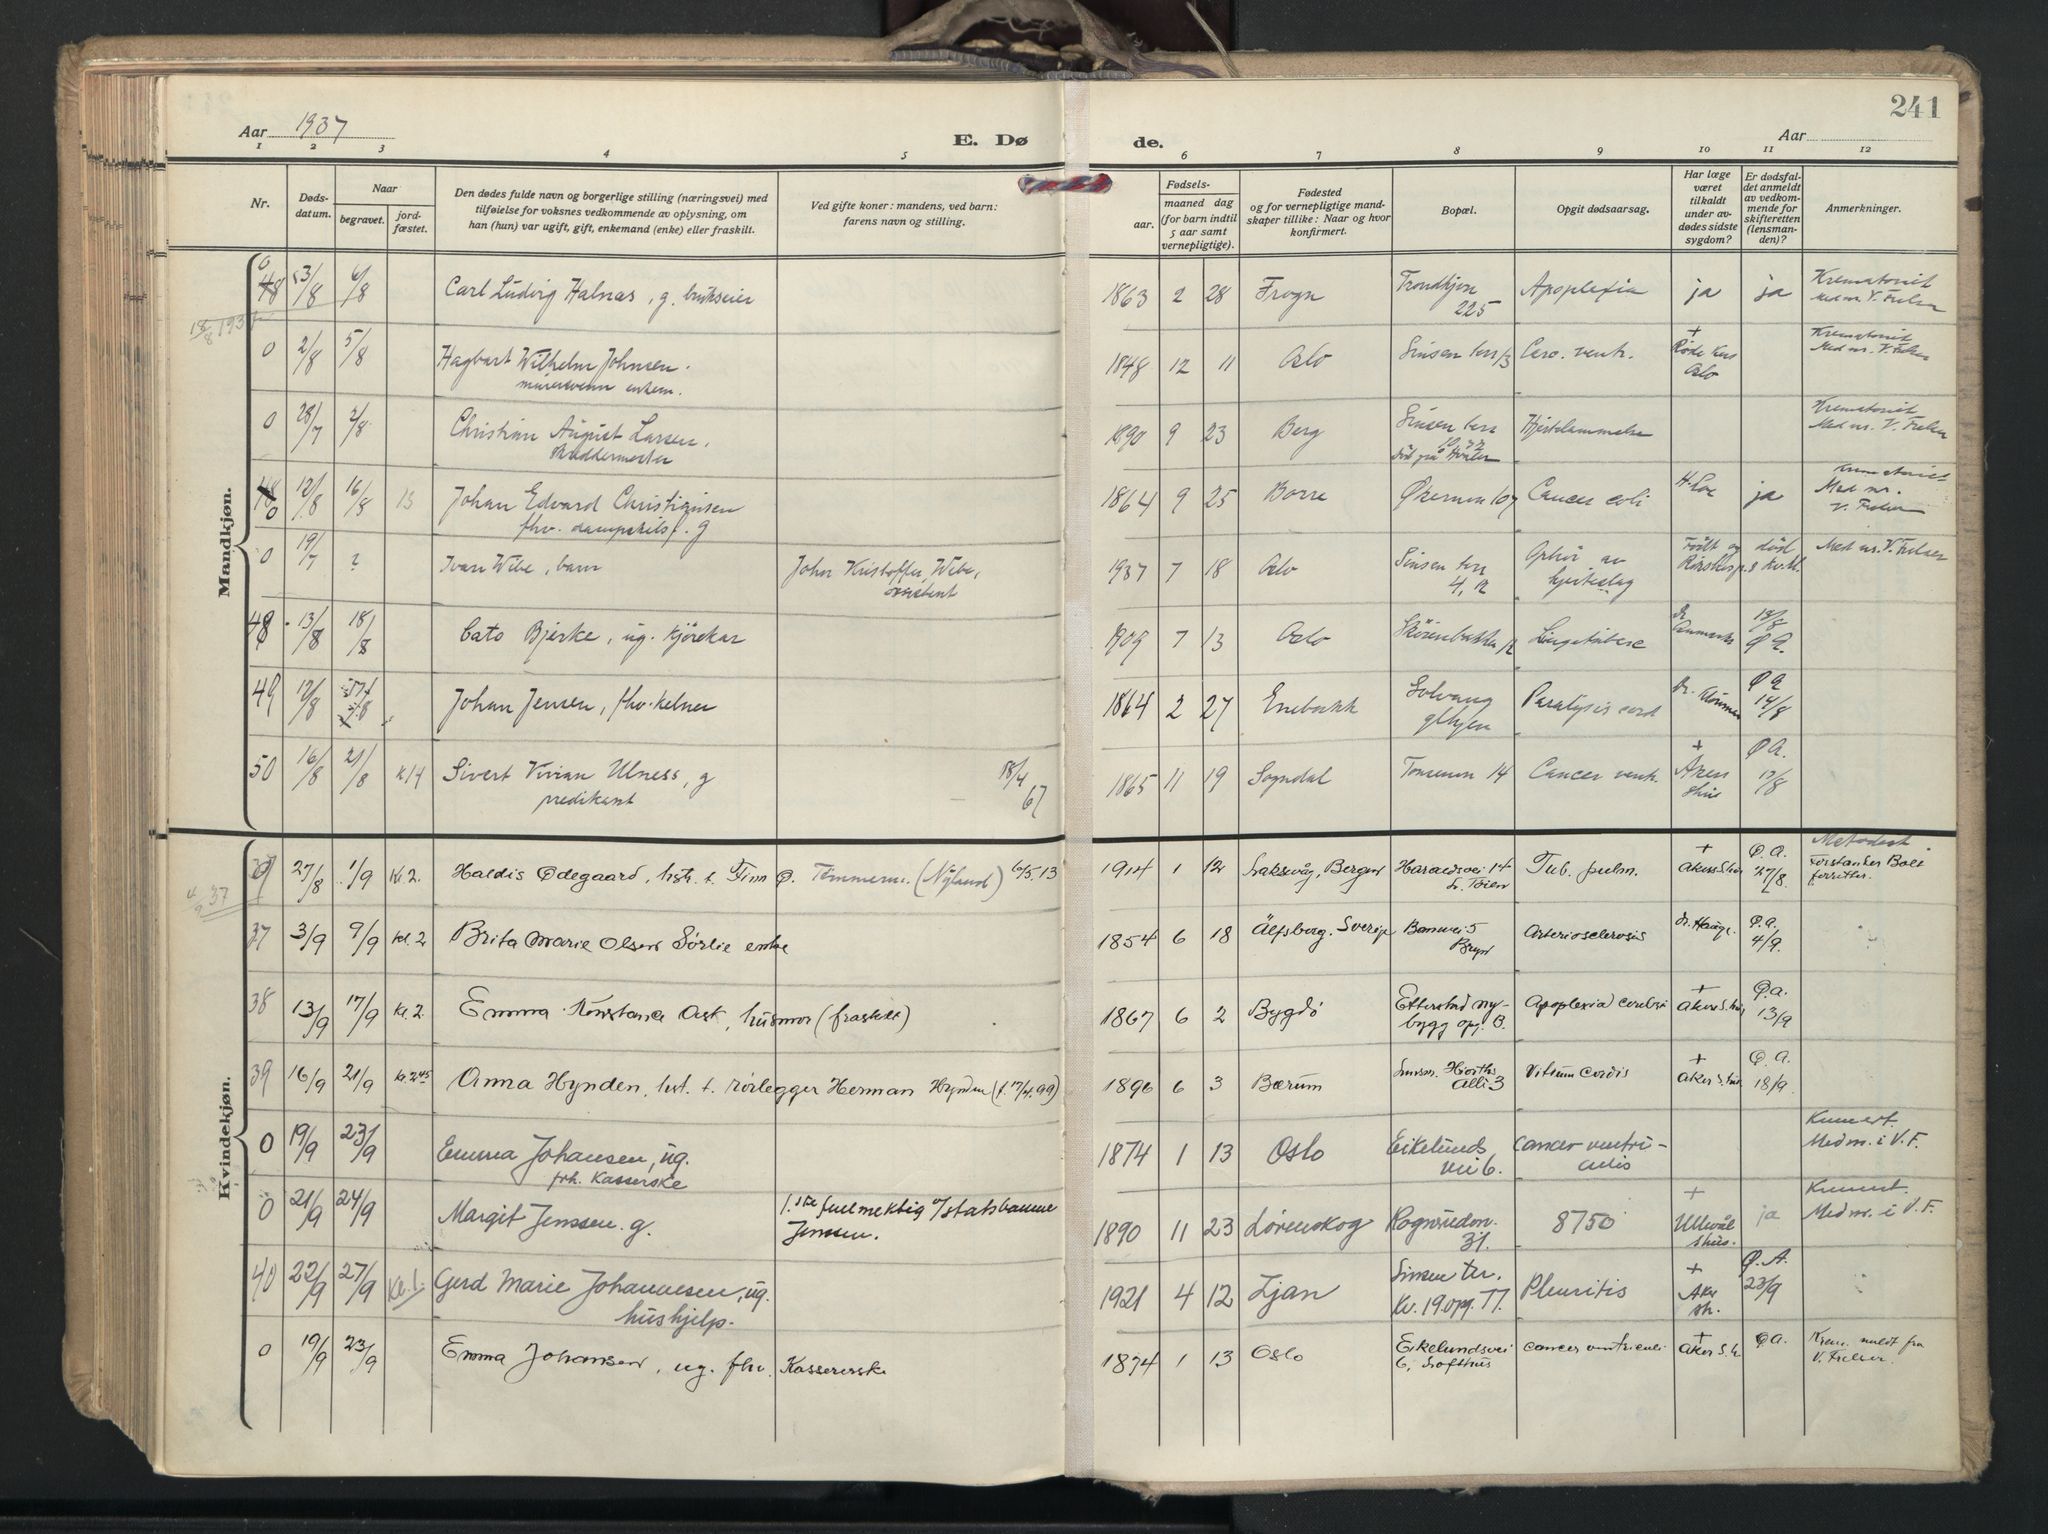 241
Aar 1937
E. Dø
de.
Aar
1 2 3 4 5 6 7 8 9 10 11 12
Nr.
Døds-
datum.
Naar
begravet.
jord-
fæstet.
Den dødes fulde navn og borgerlige stilling (næringsvei) med
tilføielse for voksnes vedkommende av oplysning, om
han (hun) var ugift, gift, enkemand (enke) eller fraskilt.
Ved gifte koner: mandens, ved barn:
farens navn og stilling.
Fødsels-
aar.
maaned dag
(for barn indtil
5 aar samt
vernepligtige).
Fødested
og for vernepligtige mand-
skaper tillike: Naar og hvor
konfirmert.
Bopæl.
Opgit dødsaarsag.
Har læge
været
tilkaldt
under av-
dødes sidste
sygdom?
Er dødsfal-
det anmeldt
av vedkom-
mende for
skifteretten
(lensman-
den)?
Anmerkninger.
Mandkjøn.
0 3/8 6/8 Carl Ludvig Halnas, g. brukseier 1863 2 28 Frogn Trondhjem 225 Apoplexia ja ja Krematoriet
Med nr. V. Frelser
18/8 1937
0 2/8 5/8 Hagbart Wilhelm Johnsen. 1848 12 11 Oslo Sinsen terr 13 Carc. ventr. + Røde Kors
Oslo
Krematoriet
Med nr. V. Frelser
murersvenn enkem.
0 28/7 2/8 Christian August Larsen, 1890 9 23 Berg Sinsen terr Hjertelammelse Krematoriet
Med nr. V. Frelser
død på Hvaler
0 12/8 16/8 13 Johan Edvard Christiansen 1864 9 25 Borre Økernvn 107 Cancer coli ja Krematoriet
Med nr.
V. Frelser
fhv. dampskibsf. g
0 19/7 ? Ivan Wibe, barn John Kristoffer Wibe, 1937 7 18 Oslo Sinsen terr Ophør av Født og død Med nr. V. Frelser
assistent 4, 12 hjerteslag Rikshosp.s kv.kl.
48 13/8 18/8 Cato Bjerke, ug. kjørekar 1909 7 13 Oslo Lungetuberc Dr. 18/8
Ø A.
49 12/8 17/8 Johan Jensen, fhv. kelner 1864 2 27 Enebakk Solvang Paralysis cord Dr. Ø A
14/8
50 16/8 21/8 kl 4 Sivert Vivian Ulness, g 18/4 1865 11 19 Sogndal Tonsenvn 14 Cancer ventr. + Akers
shus
Ø A.
17/8
predikant 67
Kvindekjøn.
27/8 1/9 Kl. 2. Haldis Ødegaard, hstr. t. Finn Ø. Tømmerm. (Nyland) 6/5.13 1914 1 12 Laksevåg, Bergen Haraldsvei 14 Tub. pulm. + Akers S.hus Ø. A.
27/8.
Metodist.
forstander Bolt
forretter.
4/9 37
37 3/9 9/9 Kl. 2 Brita Marie Olsen Sørlie enke 1854 6 18 Älfsborg. Sverige Banevei 5
Bryn
Arteriosclerosis Dr. Hauge. Ø. A.
4/9.
38 13/9 17/9 Kl. 2. Emma Konstance Ask, husmor (fraskilt) 1867 6 2 Bygdø Etterstad ny-
bygg opg. B.
Apoplexia cerebri + Akers S.hus Ø. a.
13/9
39 16/9 21/9 Kl. 2 45 Anna Hynden, hst. t. rørlegger Herman Hynden (f. 17/4.99) 1896 6 3 Bærum Hjorths
Allé 3
Vitium cordis + Aker S.hus Ø. A.
18/9.
0 19/9 23/9 Emma Johansen, ug. 1874 1 13 Oslo Eikelunds
vei 6.
cancer ventri-
culis
Kremert.
Med nr. i V. F.
frh. Kasserske
0 21/9 24/9 Margit Jenssen. g. 1.ste fuldmektig v/ statsbanene
Jenssen.
1890 11 23 Lørenskog Rognsudvn.
31.
8750 + Ullevål
shus.
ja Kremert.
Med nr. i V. F.
40 22/9 27/9 Kl. 1. Gerd Marie Johannesen, ug. 1921 4 12 Ljan Sinsen terr.
Kv. 19 opg. 77.
Pleuritis + Aker
sh.
Ø. A.
23/9
hushjelp.
0 19/9 23/9 Emma Johansen, ug. fhv. Kassererske 1874 1 13 Oslo Eikelundsvei
6, Lofthus
cancer ventriculi + Aker S.h Ø A. Krem. meldt fra
V. Frelser.